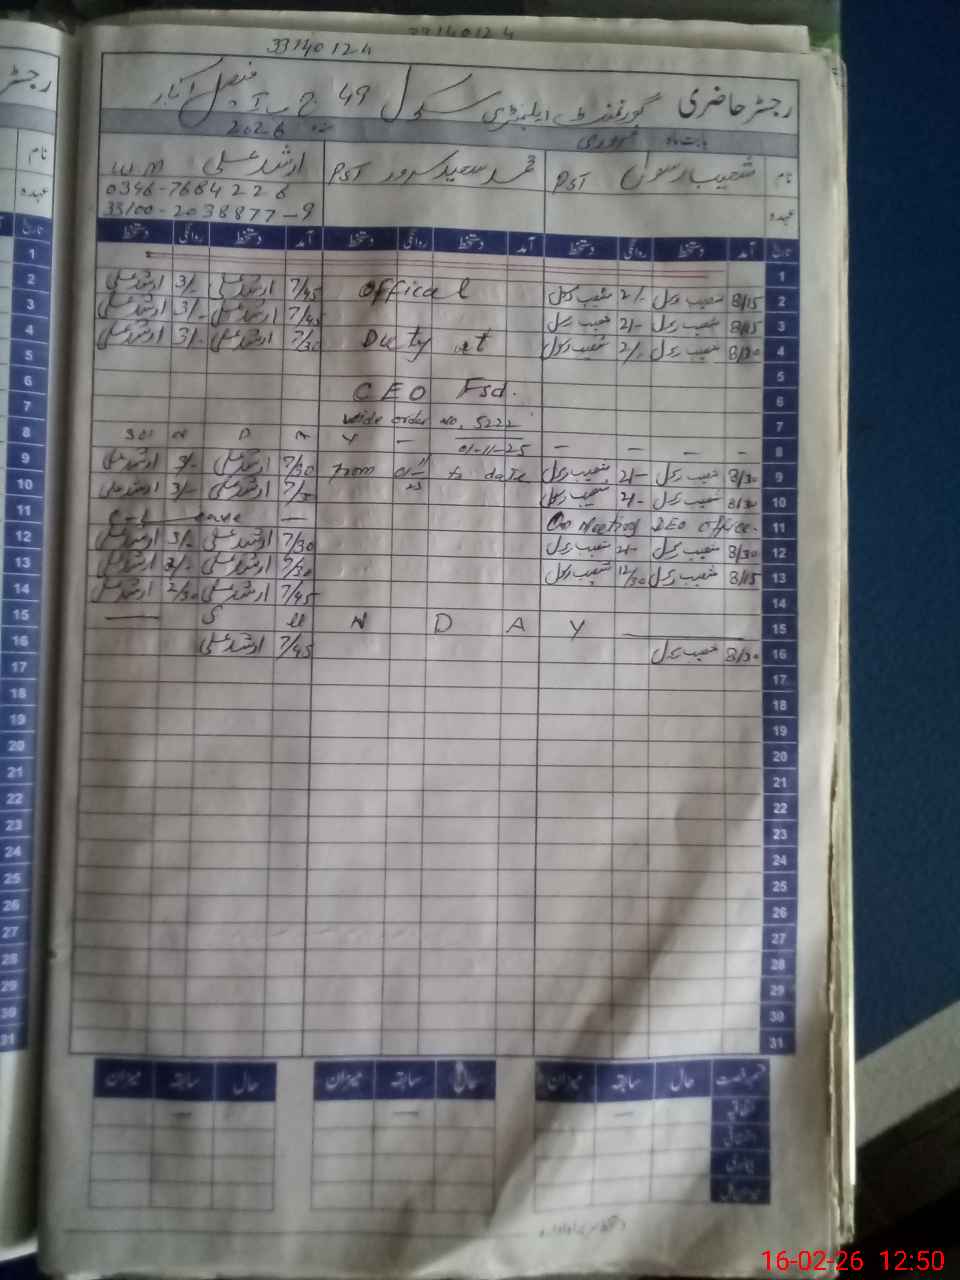 33140124
33140124
رجسٹر حاضری گورنمنٹ ایلیمنٹری سکول 49 ج ب
بابت ماہ فروری 2026
نام شعیب رسول PST محمد سعید سرور PST ارشد علی
عہدہ
0346-7684226
33100-2038877-9
تاریخ آمد دستخط روانگی دستخط آمد دستخط روانگی دستخط آمد دستخط روانگی دستخط
1
2 8/15 شعیب رسول 2/- شعیب رسول Offical 7/45 ارشد علی 3/- ارشد علی
3 8/15 شعیب رسول 2/- شعیب رسول 7/45 ارشد علی 3/- ارشد علی
4 8/30 شعیب رسول 2/- شعیب رسول Duty at 7/30 ارشد علی 3/- ارشد علی
5
6 CEO Fsd.
7 wide order no. 5222
8 01-11-25
9 8/30 شعیب رسول 2/- شعیب رسول from to date 7/30 ارشد علی 3/- ارشد علی
10 8/30 شعیب رسول 2/- شعیب رسول ارشد علی 3/- ارشد علی
11 On Meeting office. leave
12 8/30 شعیب رسول 2/- شعیب رسول 7/30 ارشد علی 3/- ارشد علی
13 8/15 شعیب رسول 12/30 شعیب رسول 7/30 ارشد علی ارشد علی
14 7/45 ارشد علی 2/30 ارشد علی
15 S U N D A Y
16 8/30 شعیب رسول 7/45 ارشد علی
17
18
19
20
21
22
23
24
25
26
27
28
29
30
31
قسم رخصت حال سابقہ میزان حال سابقہ میزان حال سابقہ میزان
اتفاقیہ
استحقاقی
بیماری
16-02-26 12:50